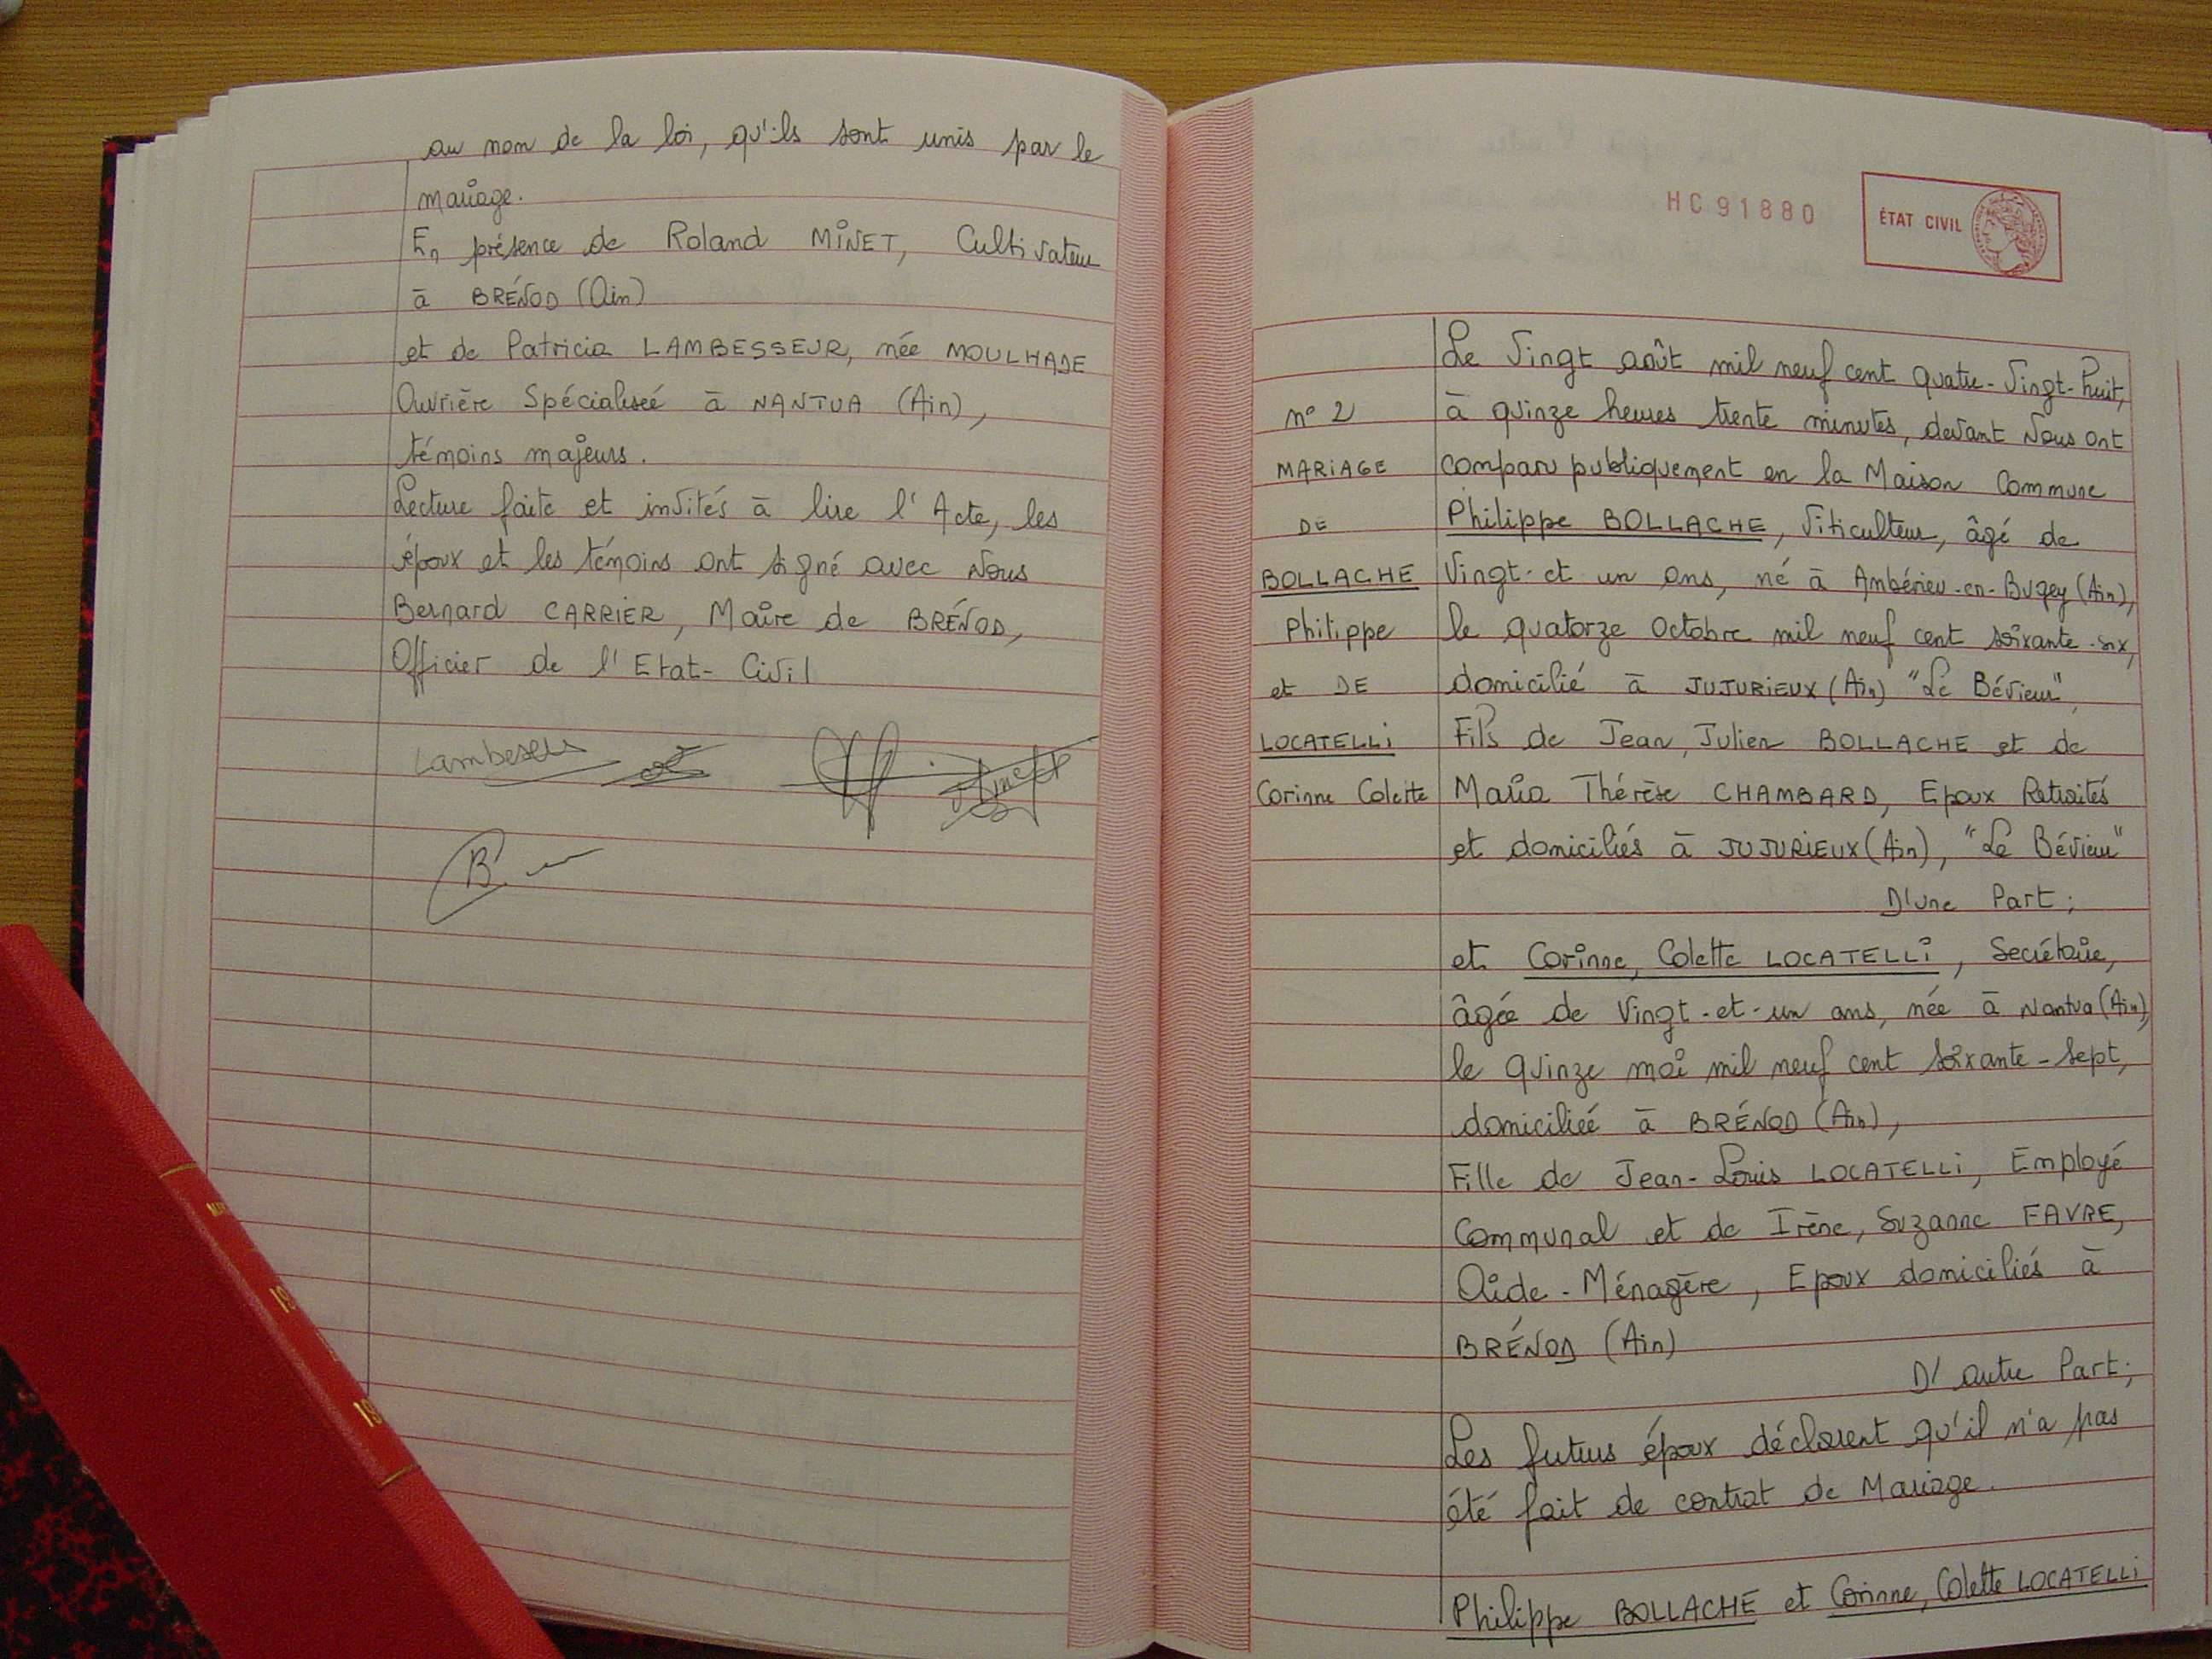 au nom de la loi, qu'ils sont unis par le
mariage.
En présence de Roland MINET, Cultivateur
à BRÉNOD (Ain)
et de Patricia LAMBESSEUR, née MOULHADE
Ouvrière Spécialisée à NANTUA (Ain),
témoins majeurs.
Lecture faite et invités à lire l'Acte, les
époux et les témoins ont signé avec Nous
Bernard CARRIER, Maire de BRÉNOD,
Officier de l'Etat-Civil
HC 91880
ÉTAT CIVIL
n° 2
MARIAGE
DE
BOLLACHE
Philippe
et DE
LOCATELLI
Corinne Colette
Le Vingt août mil neuf cent quatre-Vingt-huit,
à quinze heures trente minutes, devant Nous ont
comparu publiquement en la Maison Commune
Philippe BOLLACHE, Viticulteur, âgé de
Vingt-et un ans, né à Ambérieu-en-Bugey (Ain),
le quatorze Octobre mil neuf cent soixante-six,
domicilié à JUJURIEUX (Ain) "Le Bévieur",
Fils de Jean, Julien BOLLACHE et de
Maria Thérèse CHAMBARD, Epoux Retraités
et domiciliés à JUJURIEUX (Ain), "Le Bévieur"
D'une Part;
et Corinne, Colette LOCATELLI, Secrétaire,
âgée de Vingt-et-un ans, née à Nantua (Ain),
le quinze mai mil neuf cent soixante-sept,
domiciliée à BRÉNOD (Ain),
Fille de Jean-Louis LOCATELLI, Employé
Communal et de Irène, Suzanne FAVRE,
Aide-Ménagère, Epoux domiciliés à
BRÉNOD (Ain)
D'autre Part;
Les futurs époux déclarent qu'il n'a pas
été fait de contrat de Mariage.
Philippe BOLLACHE et Corinne, Colette LOCATELLI